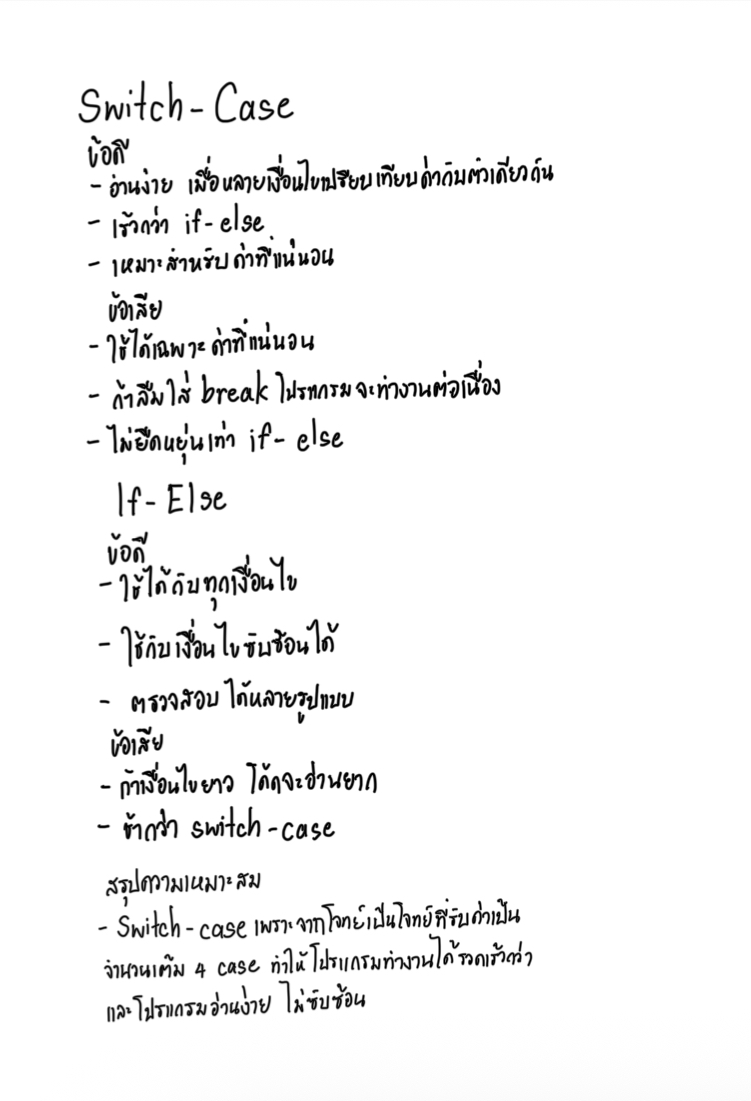 Switch - Case
ข้อดี
- อ่านง่าย เมื่อหลายเงื่อนไขเปรียบเทียบค่ากับตัวเดียวกัน
- เร็วกว่า if - else
- เหมาะสำหรับค่าที่แน่นอน
ข้อเสีย
- ใช้ได้เฉพาะค่าที่แน่นอน
- ถ้าลืมใส่ break โปรแกรมจะทำงานต่อเนื่อง
- ไม่ยืดหยุ่นเท่า if - else
If - Else
ข้อดี
- ใช้ได้กับทุกเงื่อนไข
- ใช้กับเงื่อนไขซับซ้อนได้
- ตรวจสอบได้หลายรูปแบบ
ข้อเสีย
- ถ้าเงื่อนไขยาว โค้ดจะอ่านยาก
- ช้ากว่า switch - case
สรุปความเหมาะสม
- Switch - case เพราะจากโจทย์เป็นโจทย์ที่รับค่าเป็น
จำนวนเต็ม 4 case ทำให้โปรแกรมทำงานได้รวดเร็วกว่า
และโปรแกรมอ่านง่าย ไม่ซับซ้อน